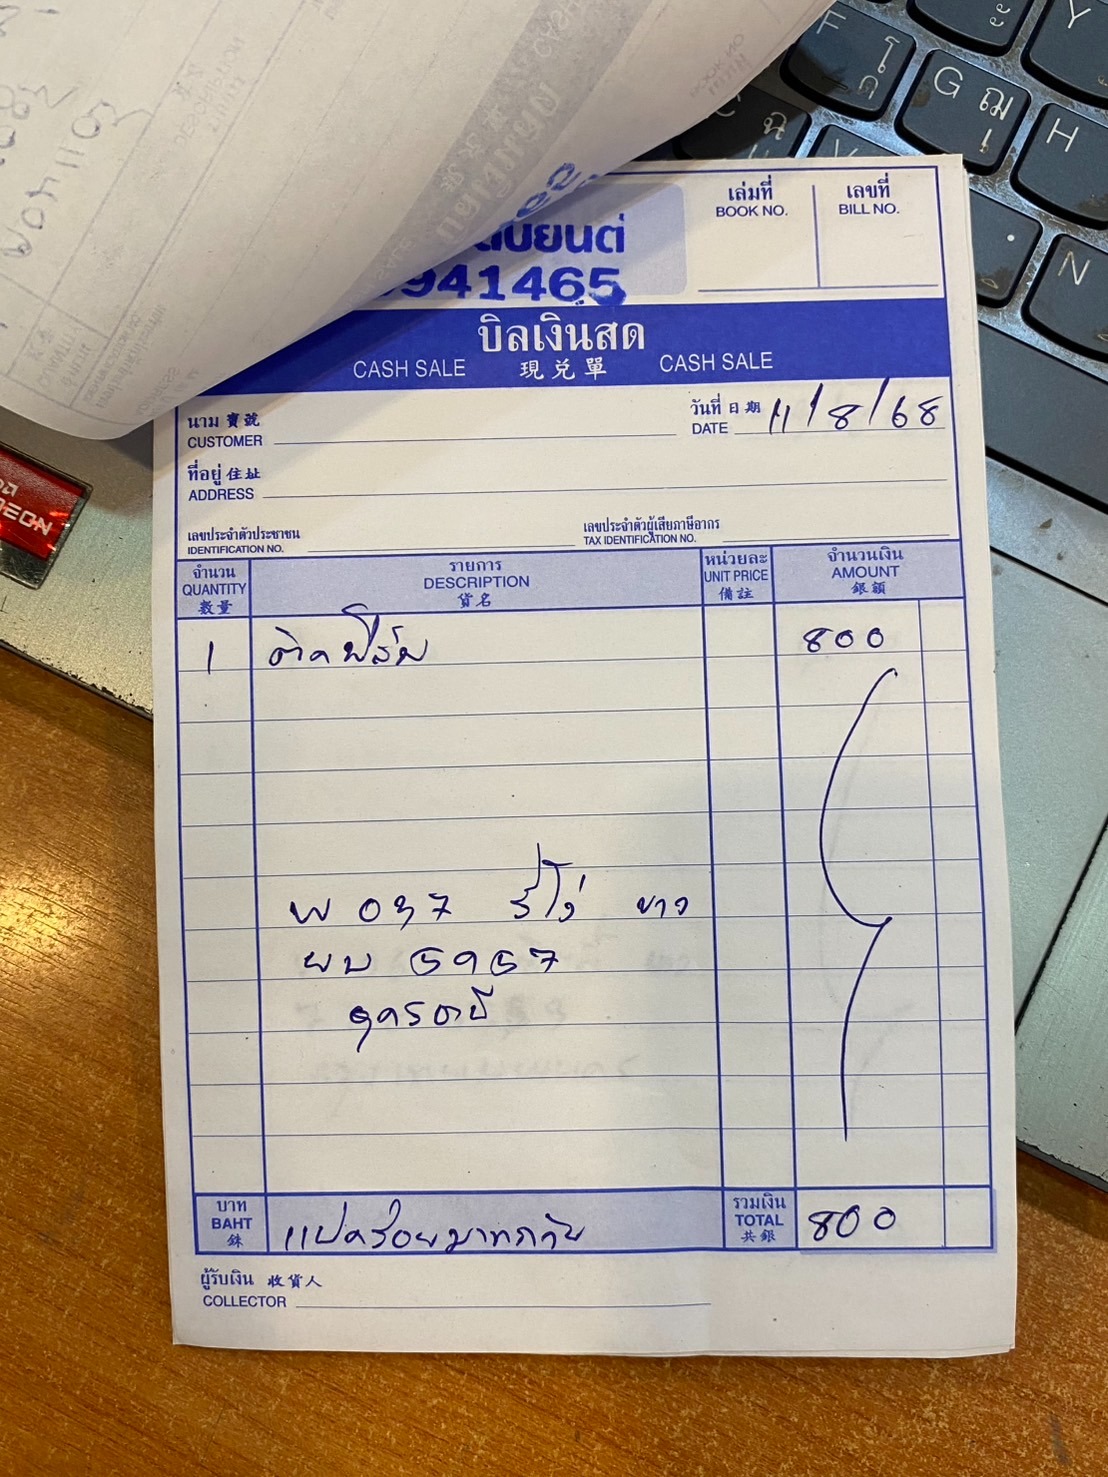 F
โ
ด
Y
G
ฌ
เ
H
N
เล่มที่
BOOK NO.
เลขที่
BILL NO.
941465
บิลเงินสด
CASH SALE 現兌單 CASH SALE
นาม 寶號
CUSTOMER
วันที่ 日期
DATE 11/8/68
ที่อยู่ 住址
ADDRESS
เลขประจำตัวประชาชน
IDENTIFICATION NO.
เลขประจำตัวผู้เสียภาษีอากร
TAX IDENTIFICATION NO.
จำนวน
QUANTITY
數量
รายการ
DESCRIPTION
貨名
หน่วยละ
UNIT PRICE
備註
จำนวนเงิน
AMOUNT
銀額
1 ติดฟิล์ม 800
รีโว่ ขาว
ยบ 5957
อุดรธานี
บาท
BAHT
銖
แปดร้อยบาทถ้วน
รวมเงิน
TOTAL
共銀
800
ผู้รับเงิน 收貨人
COLLECTOR